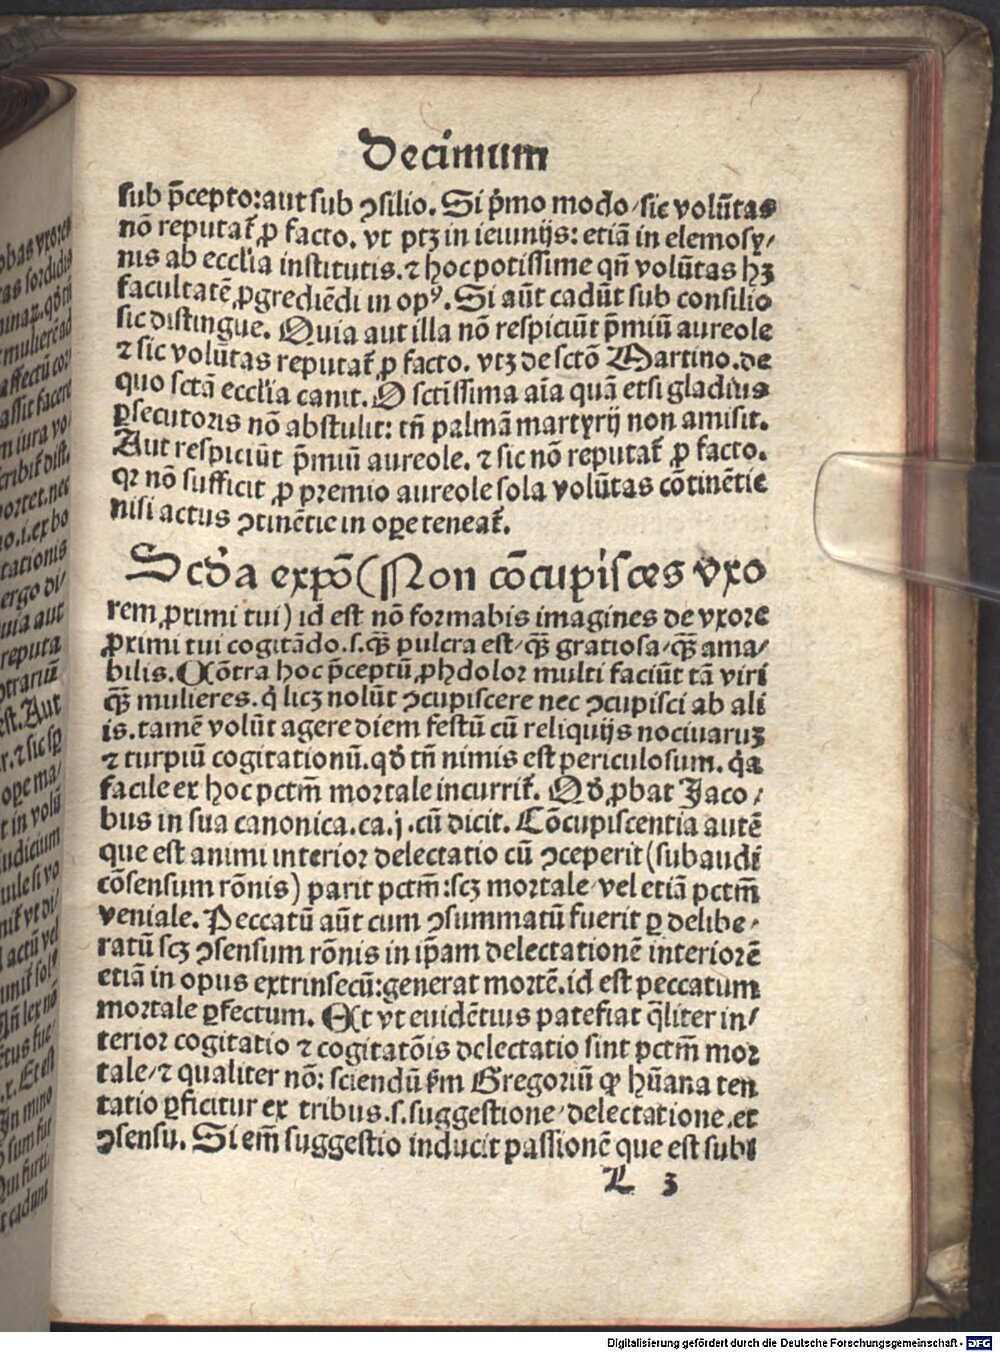 Decimum
sub p̄cepto: aut sub ꝯsilio. Si p̄mo modo / sic volūtas
nō reputat᷑ ꝓ facto. vt ptꝫ in ieiunijs: etiā in elemosy/
nis ab eccl̄ia institutis. ⁊ hoc potissime qn̄ volūtas hꝫ
facultatē ꝓgrediēdi in opꝰ. Si aūt cadūt sub consilio
sic distingue. Quia aut illa nō respiciūt p̄miū aureole
⁊ sic volūtas reputat᷑ ꝓ facto. vtꝫ de sctō Martino. de
quo sctā eccl̄ia canit. O sctissima aīa quā etsi gladius
ꝑsecutoris nō abstulit: tn̄ palmā martyrij non amisit.
Aut respiciūt p̄miū aureole. ⁊ sic nō reputat᷑ ꝓ facto.
qꝛ nō sufficit ꝓ premio aureole sola volūtas cōtinētie
nisi actus ꝯtinētie in oꝑe teneat᷑.
Scd̄a expō (Non cōcupisces vxo
rem ꝓximi tui) id est nō formabis imagines de vxore
ꝓximi tui cogitādo. s. qꝫ̄ pulcra est / qꝫ̄ gratiosa / qꝫ̄ ama/
bilis. Cōtra hoc p̄ceptū ꝓhdolor multi faciūt tā viri
qꝫ̄ mulieres. q̇ licꝫ nolūt ꝯcupiscere nec ꝯcupisci ab ali
is. tamē volūt agere diem festū cū reliquijs nociuaruꝫ
⁊ turpiū cogitationū. qd̄ tn̄ nimis est periculosum. q̇a
facile ex hoc pctm̄ mortale incurrit᷑. Qd̄ ꝓbat Jaco/
bus in sua canonica. ca. j. cū dicit. Cōcupiscentia autē
que est animi interior delectatio cū ꝯceperit (subaudi
cōsensum rōnis) parit pctm̄: scꝫ mortale / vel etiā pctm̄
veniale. Peccatū aūt cum ꝯsummatū fuerit ꝑ delibe/
ratū scꝫ ꝯsensum rōnis in ip̄am delectationē interiorē
etiā in opus extrinsecū: generat mortē. id est peccatum
mortale ꝑfectum. Et vt euidētius patefiat q̄liter in/
terior cogitatio ⁊ cogitatōis delectatio sint pctm̄ mor
tale / ⁊ qualiter nō: sciendū ẜm Gregoriū ꝙ hūana ten
tatio ꝑficitur ex tribus. s. suggestione / delectatione. et
ꝯsensu. Si em̄ suggestio inducit passionē que est subi
L 3
Digitalisierung gefördert durch die Deutsche Forschungsgemeinschaft - DFG